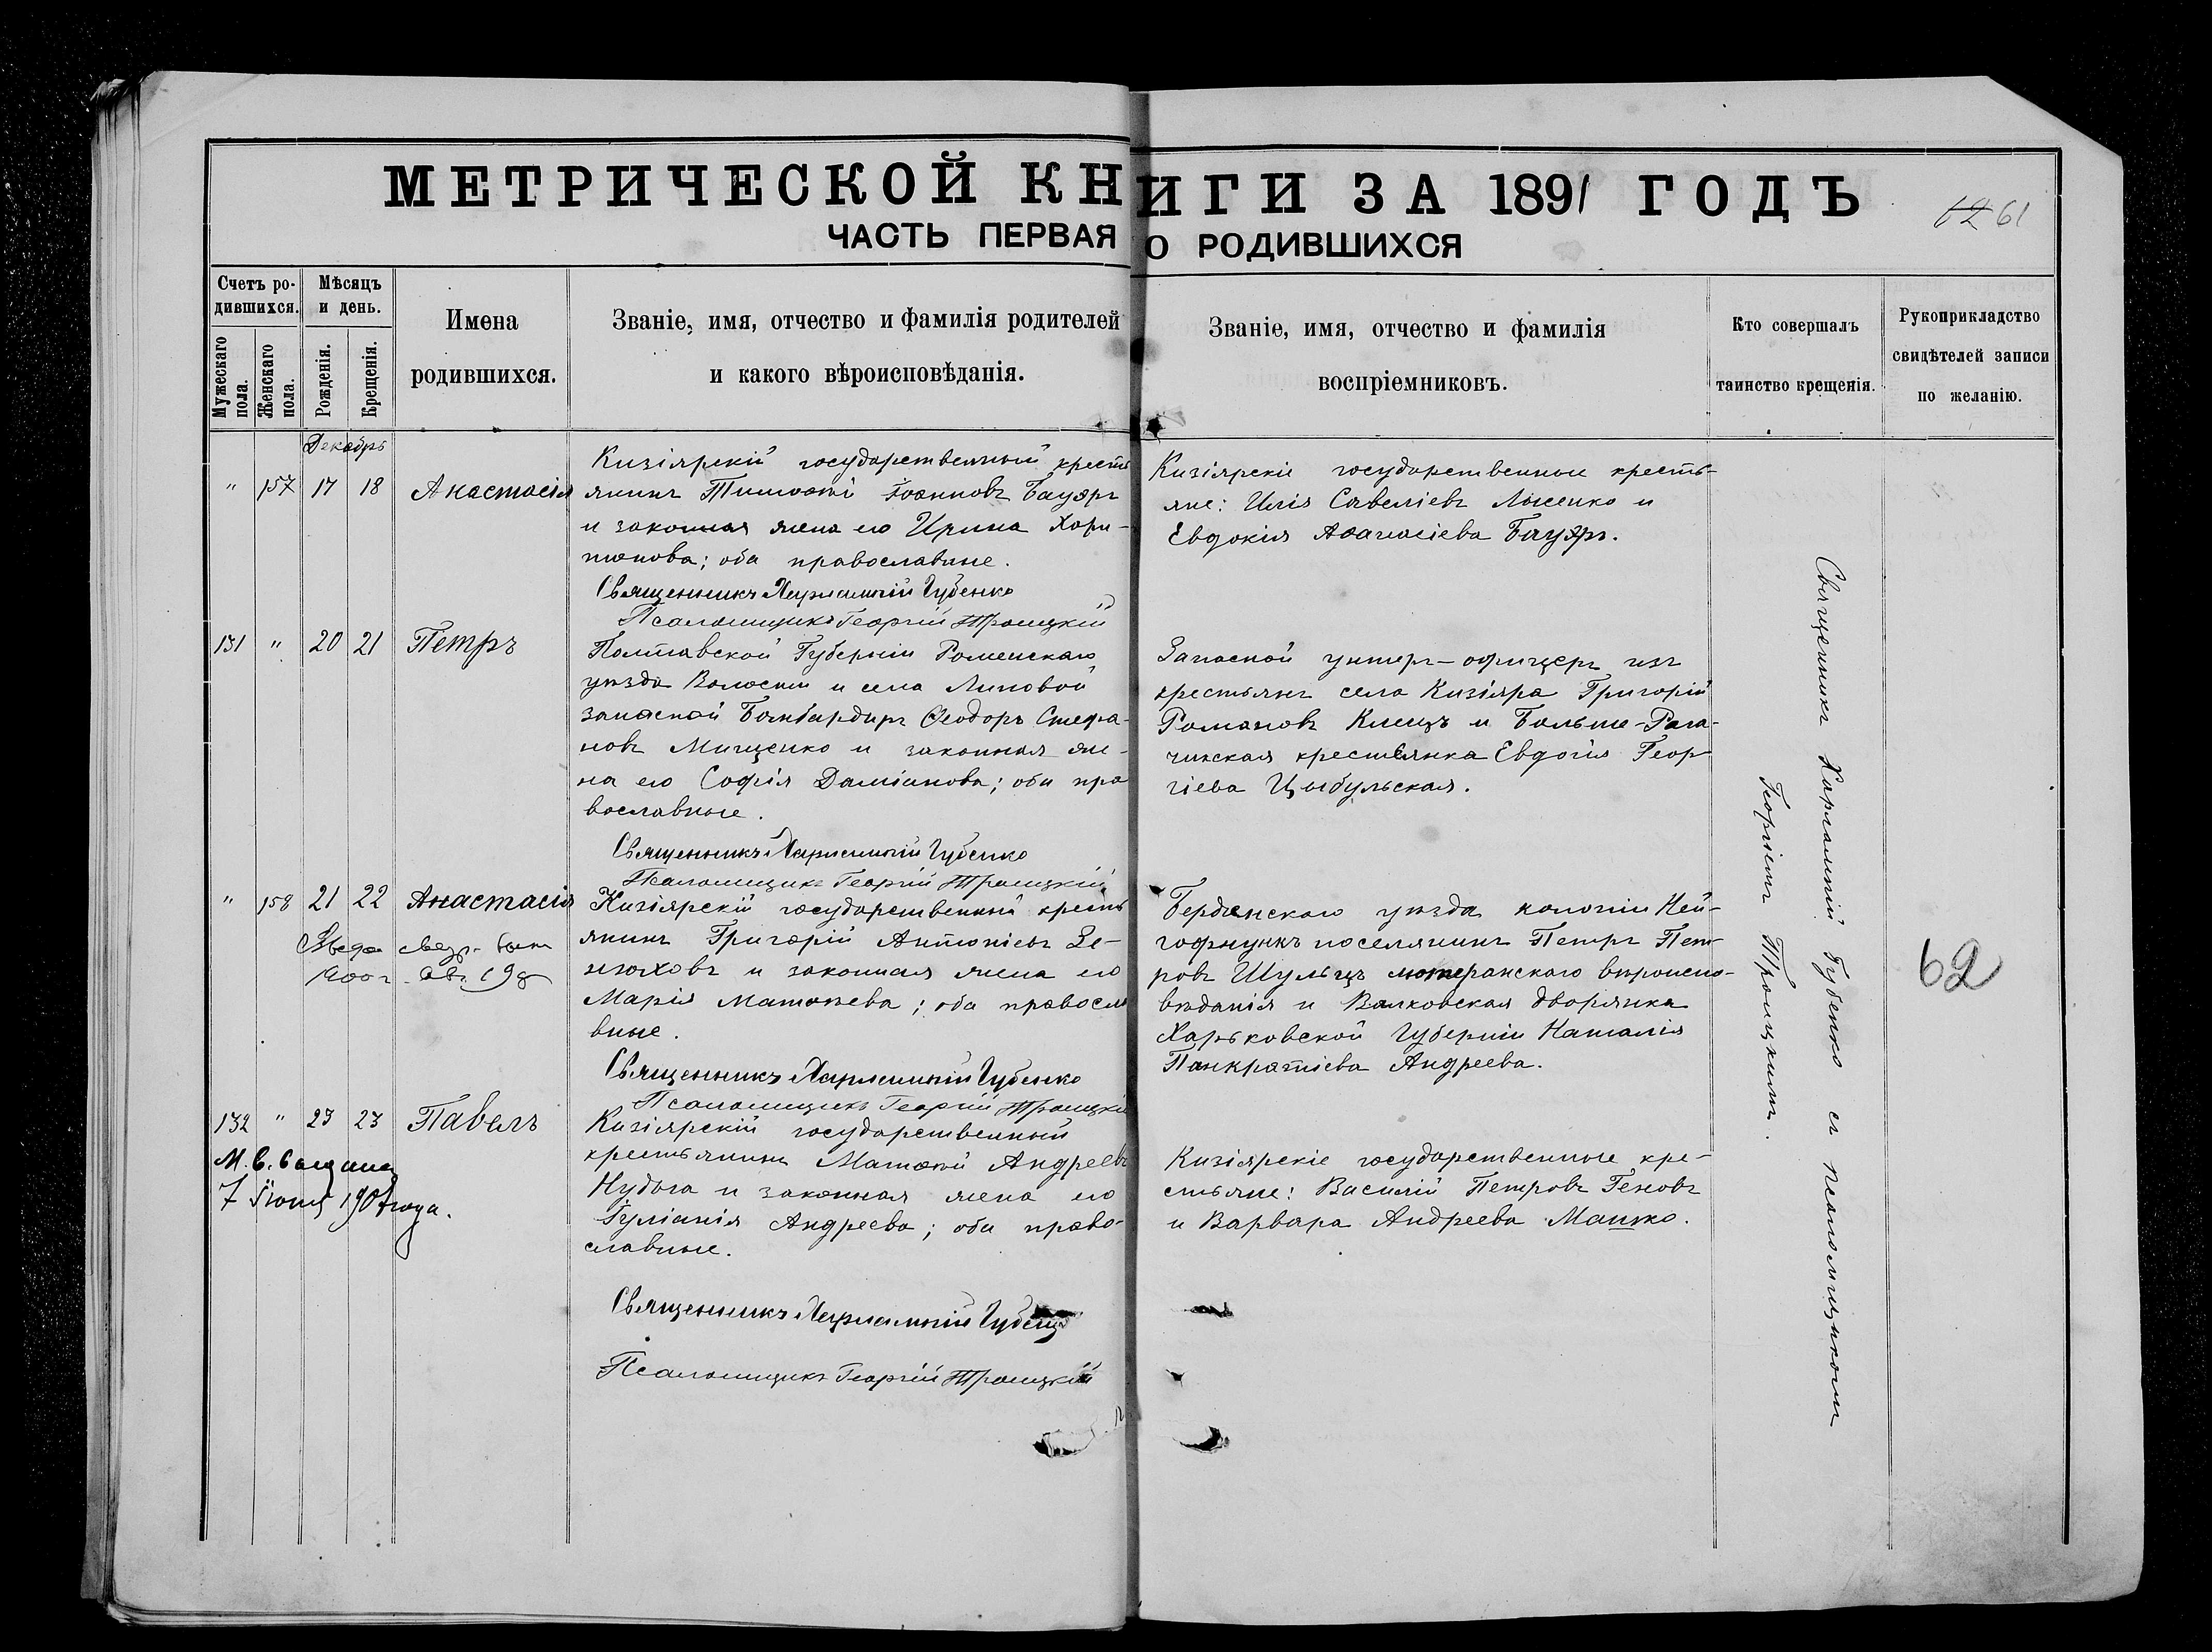 МЕТРИЧЕСКОЙ КНИГИ ЗА 1891 ГОДЪ
62 61
ЧАСТЬ ПЕРВАЯ О РОДИВШИХСЯ
Счетъ родившихся.
Мужескаго пола.
Женскаго пола.
Мѣсяцъ и день.
Рожденія.
Крещенія.
Имена
родившихся.
Званіе, имя, отчество и фамилія родителей
и какого вѣроисповѣданія.
Званіе, имя, отчество и фамилія
воспріемниковъ.
Кто совершалъ
таинство крещенія.
Рукоприкладство
свидѣтелей записи
по желанію.
Декабрь
" 157 17 18 Анастасія
Кизіярскій государственный кресть
янинъ Тимоѳей Іоанновъ Бауэръ
и законная жена его Ирина Хари-
тонова; оба православные.
Священникъ Харлампій Губенко
Псаломщикъ Георгій Троицкій
Кизіярскіе государственные кресть-
яне: Илія Савеліевъ Лысенко и
Евдокія Аѳанасіева Бауэръ.
131 " 20 21 Петръ
Полтавской Губерніи Роменскаго
уѣзда Волости и села Липовой
запасной Бомбардиръ Ѳеодоръ Стефа-
новъ Мищенко и законная же-
на его Софія Даміанова; оба пра
вославные.
Священникъ Харлампій Губенко
Псаломщикъ Георгій Троицкій
Запасной унтеръ-офицеръ изъ
крестьянъ села Кизіяра Григорій
Романовъ Клецъ и Больше-Рога-
чикская крестьянка Евдокія Геор-
гіева Цыбульская.
" 158 21 22 Анастасія
Кизіярскій государственный кресть
янинъ Григорій Антоніевъ Зе-
нюховъ и законная жена его
Марія Матѳіева; оба правосла
вные.
Священникъ Харлампій Губенко
Псаломщикъ Георгій Троицкій
Бердянскаго уѣзда колоніи Ней-
гофнункъ поселянинъ Петръ Пет-
ровъ Шульцъ лютеранскаго вѣроиспо-
вѣданія и Валковская дворянка
Харьковской Губерніи Наталія
Панкратіева Андреева.
132 " 23 23 Павелъ
М. в. выдана
7 Іюня 1907 года.
Кизіярскій государственный
крестьянинъ Матѳей Андреевъ
Нудьга и законная жена его
Іуліанія Андреева; оба право-
славные.
Священникъ Харлампій Губенко
Псаломщикъ Георгій Троицкій
Кизіярскіе государственные кре-
стьяне: Василій Петровъ Геновъ
и Варвара Андреева Мацко.
Священникъ Харлампій Губенко съ псаломщикомъ
Георгіемъ Троицкимъ.
62